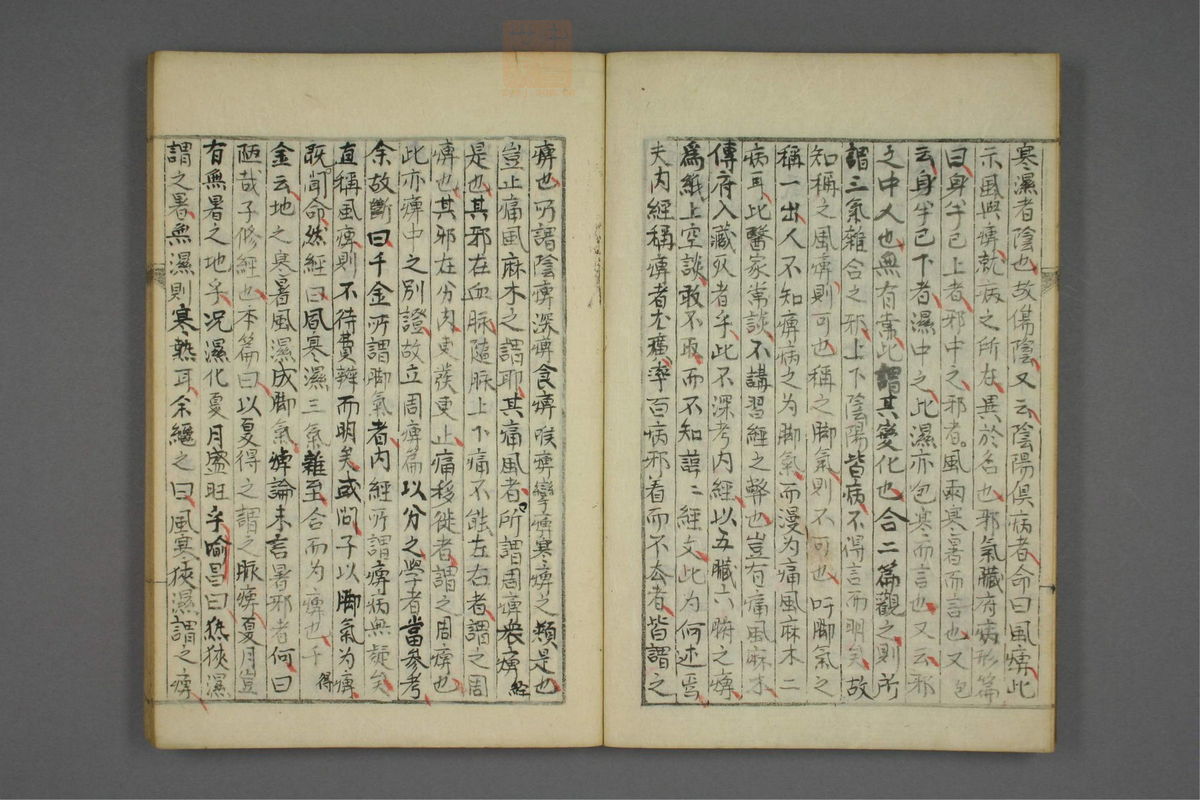 寒濕者陰也故傷陰又云陰陽俱病者命曰風痺此
示風與痺就病之所在異於名也邪氣臟府病形篇
曰身半已上者邪中之邪者風兩寒暑而言也又包
云身半已下者濕中之此濕亦包寒而言也又云邪
之中人也無有常此謂其變化也合二篇觀之則所
謂三氣雜合之邪上下陰陽皆病不得言而明矣故
知稱之風痺則可也稱之脚氣則不可也吁脚氣之
稱一出人不知痺病之为脚氣而漫为痛風麻木二
病耳此醫家常談不講習經之弊也豈有痛風麻木
傳府入藏死者乎此不深考内經以五臟六腑之痺
為紙上空談敢不取而不知諱二經文此为何述焉
夫内經稱痺者尤廣率百病邪着而不去者皆謂之
痺也乃謂陰痺深痺食痺喉痺孿痺寒痺之類是也
豈止痛風麻木之謂耶其痛風者所謂周痺衆痺經
是也其邪在血脉隨脉上下痛不能左右者謂之周
痺也其邪在分肉更發更止痛移徙者謂之周痺也
此亦痺中之別證故立周痺篇以分之學者當參考
余故斷曰千金所謂脚氣者内經所謂痺病無疑矣
直稱風痺則不待費辨而明矣或問子以脚氣为痺
既聞命然經曰風寒濕三氣雜至合而为痺也千得
金云地之寒暑風濕成脚氣痺論未言暑邪者何曰
陋哉子修經也本篇曰以夏得之謂之脉痺夏月豈
有無暑之地乎况濕化夏月盛旺乎喻昌曰熱挾濕
謂之暑無濕則寒熱耳余繼之曰風寒挾濕謂之痺